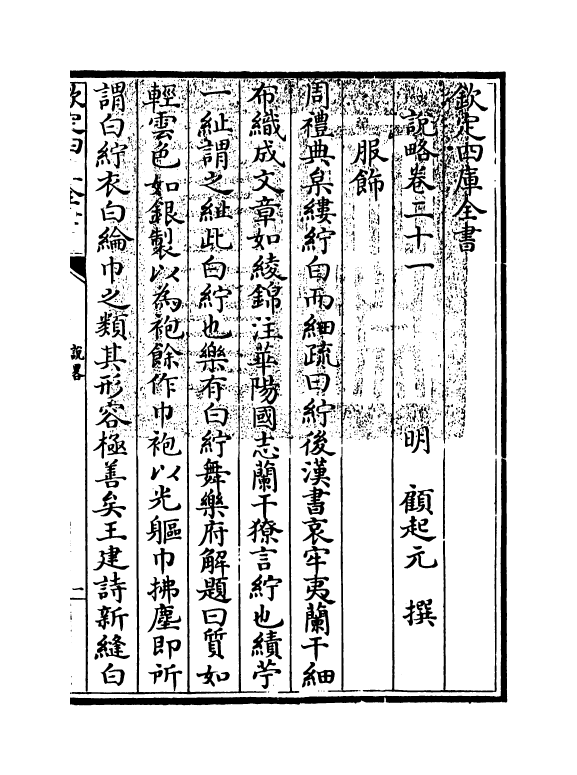 欽定四庫全書
說略卷二十一
明 顧起元 撰
服飾
周禮典枲縷紵白而細疏曰紵後漢書哀牢夷蘭干細
布織成文章如綾錦注華陽國志蘭干獠言紵也績苧
一紪謂之紪此白紵也樂有白紵舞樂府解題曰質如
輕雲色如銀製以為袍餘作巾袍以光軀巾拂塵即所
謂白紵衣白綸巾之類其形容極善矣王建詩新縫白
欽定四
說畧